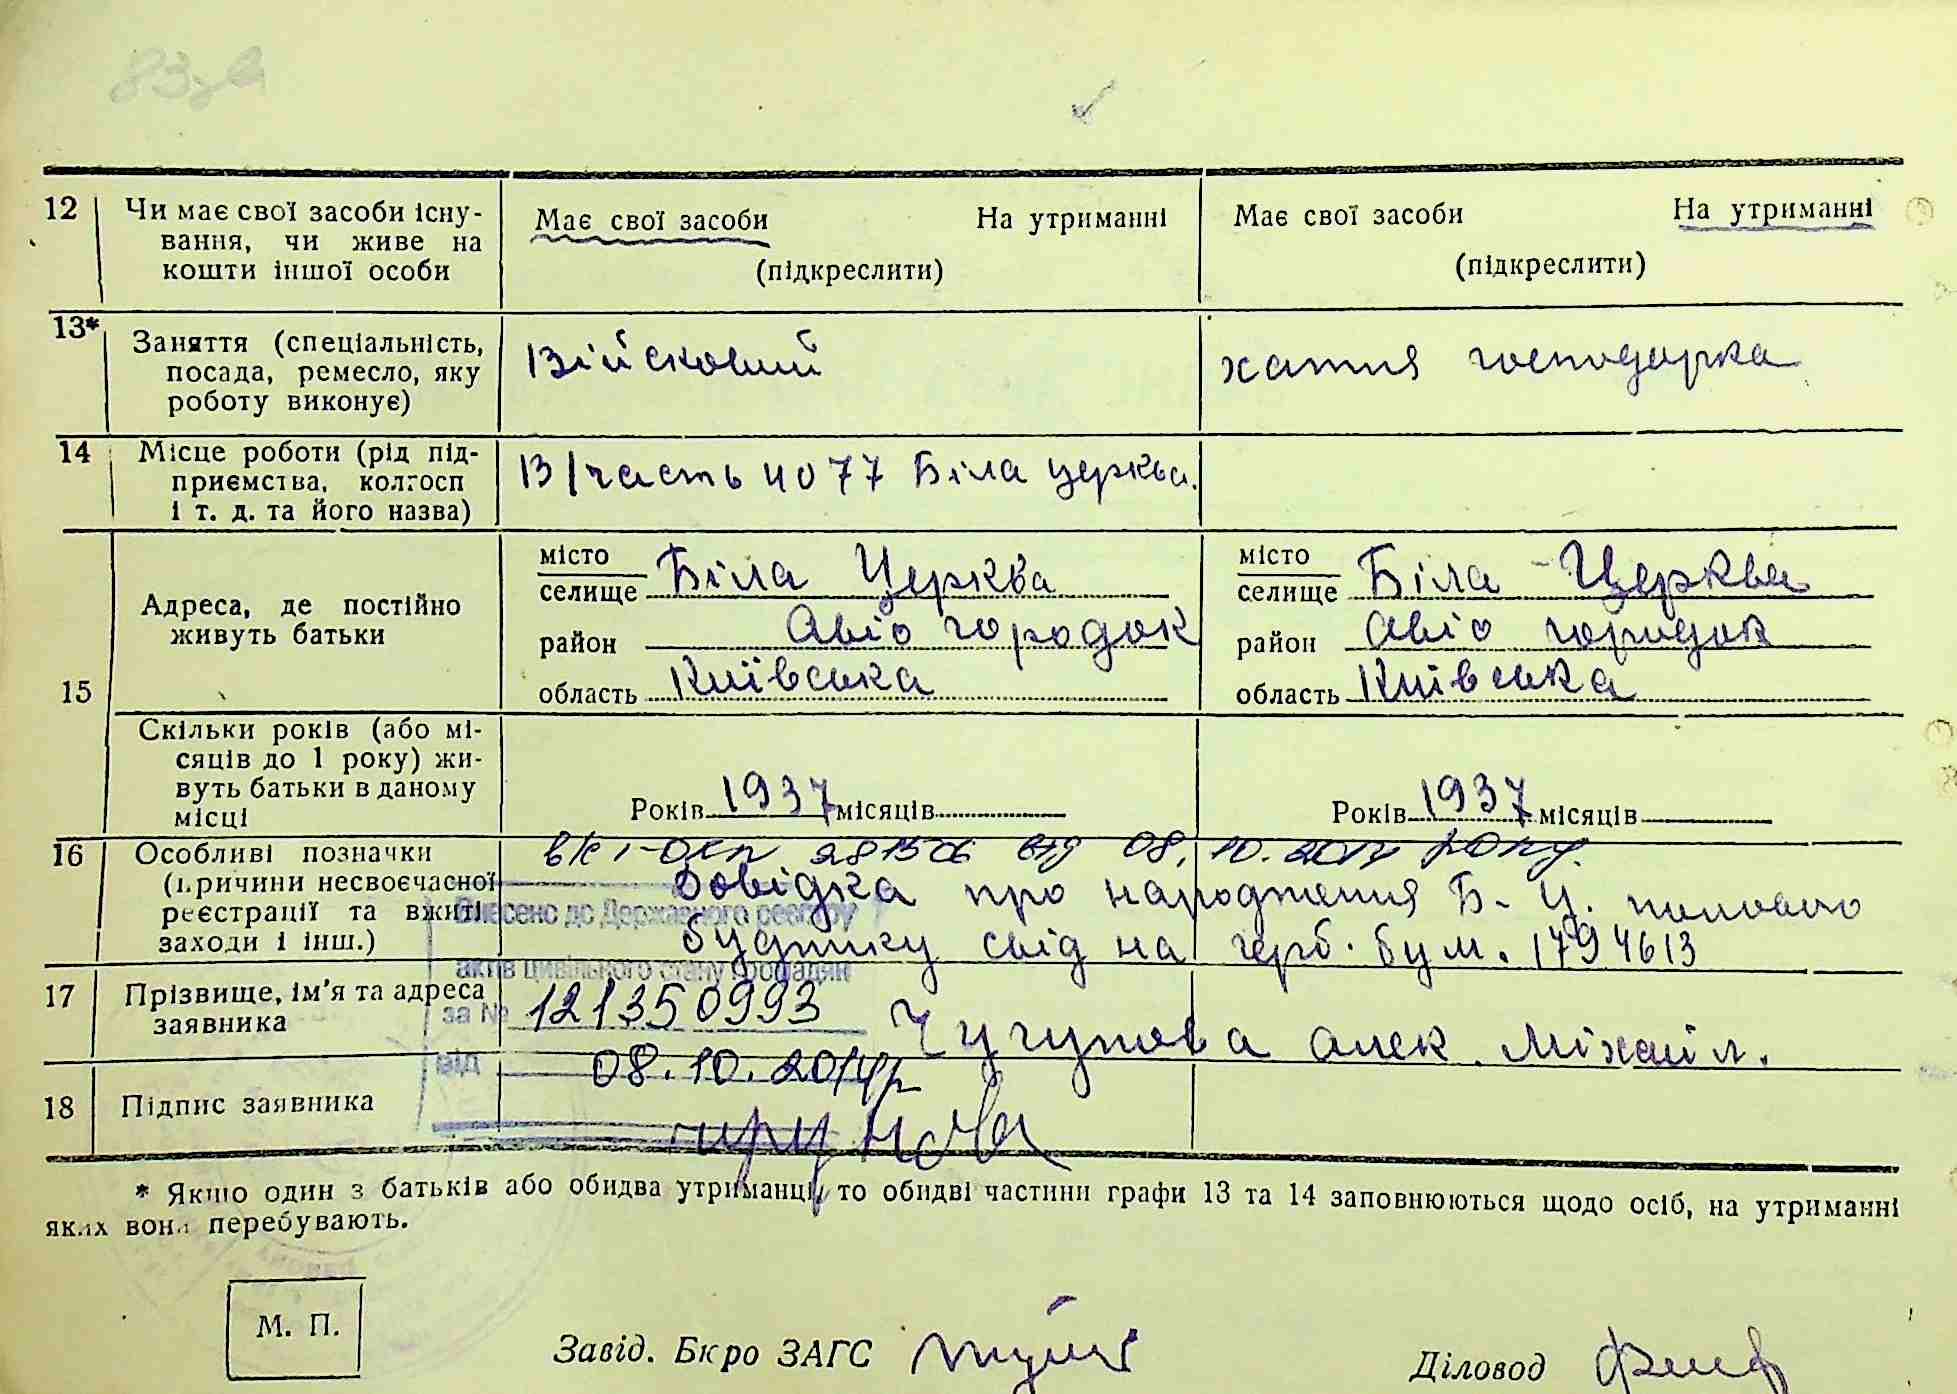 12 Чи має свої засоби існу-
вання, чи живе на
кошти іншої особи
Має свої засоби На утриманні
(підкреслити)
Має свої засоби На утриманні
(підкреслити)
13* Заняття (спеціальність,
посада, ремесло, яку
роботу виконує)
Військовий
хатня господарка
14 Місце роботи (рід під-
приємства, колгосп
і т. д. та його назва)
В/часть 4077 Біла церква.
15 Адреса, де постійно
живуть батьки
місто
селище Біла Церква
район Авіо городок
область Київська
місто
селище Біла-Церква
район Авіо городок
область Київська
Скільки років (або мі-
сяців до 1 року) жи-
вуть батьки в даному
місці
Років 1937 місяців
Років 1937 місяців
16 Особливі позначки
(причини несвоєчасної
реєстрації та вжиті
заходи і інш.)
від 08.10.2014 року.
Довідка про народження Б-Ц. полового
будинку свід на герб. бум. 1794613
Внесено до Державного реєстру
актів цивільного стану громадян
за № 121350993
від 08.10.2014р
17 Прізвище, ім'я та адреса
заявника
Чугунова Алек. Міхайл.
18 Підпис заявника
Чугунова
* Якщо один з батьків або обидва утриманці, то обидві частини графи 13 та 14 заповнюються щодо осіб, на утриманні
яких вони перебувають.
М. П.
Завід. Бюро ЗАГС
Діловод